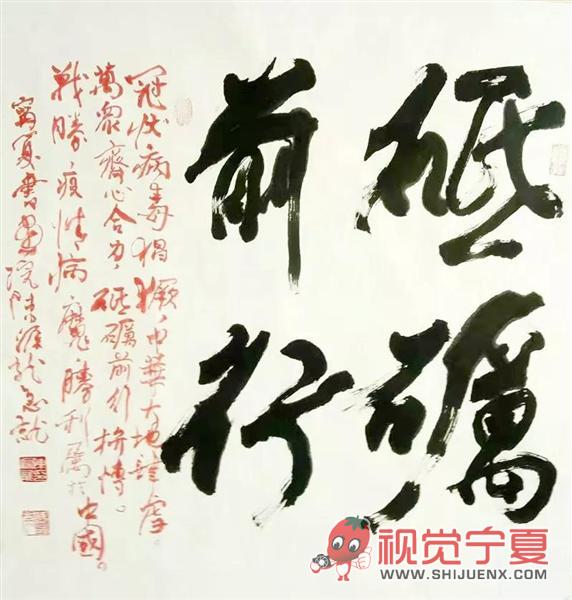 砥礪
前行
冠状病毒猖獗，中華大地肆虐。
萬眾齊心合力，砥礪前行拚搏。
戰勝疫情病魔，勝利屬於中國。
寧夏書畫院陳龍急就
视觉宁夏
WWW.SHIJUENX.COM